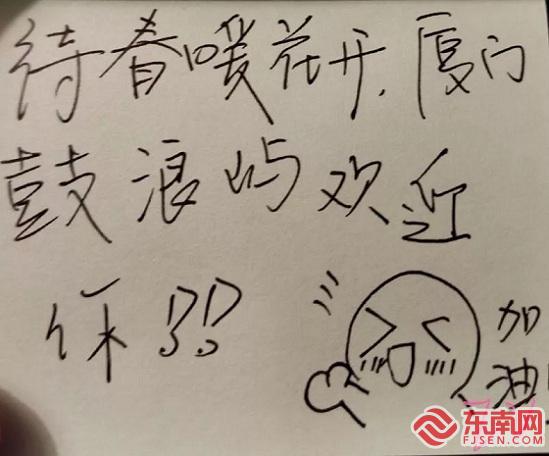 待春暖花开,厦门
鼓浪屿欢迎
你!!
加
油!
东南网
FJSEN.COM